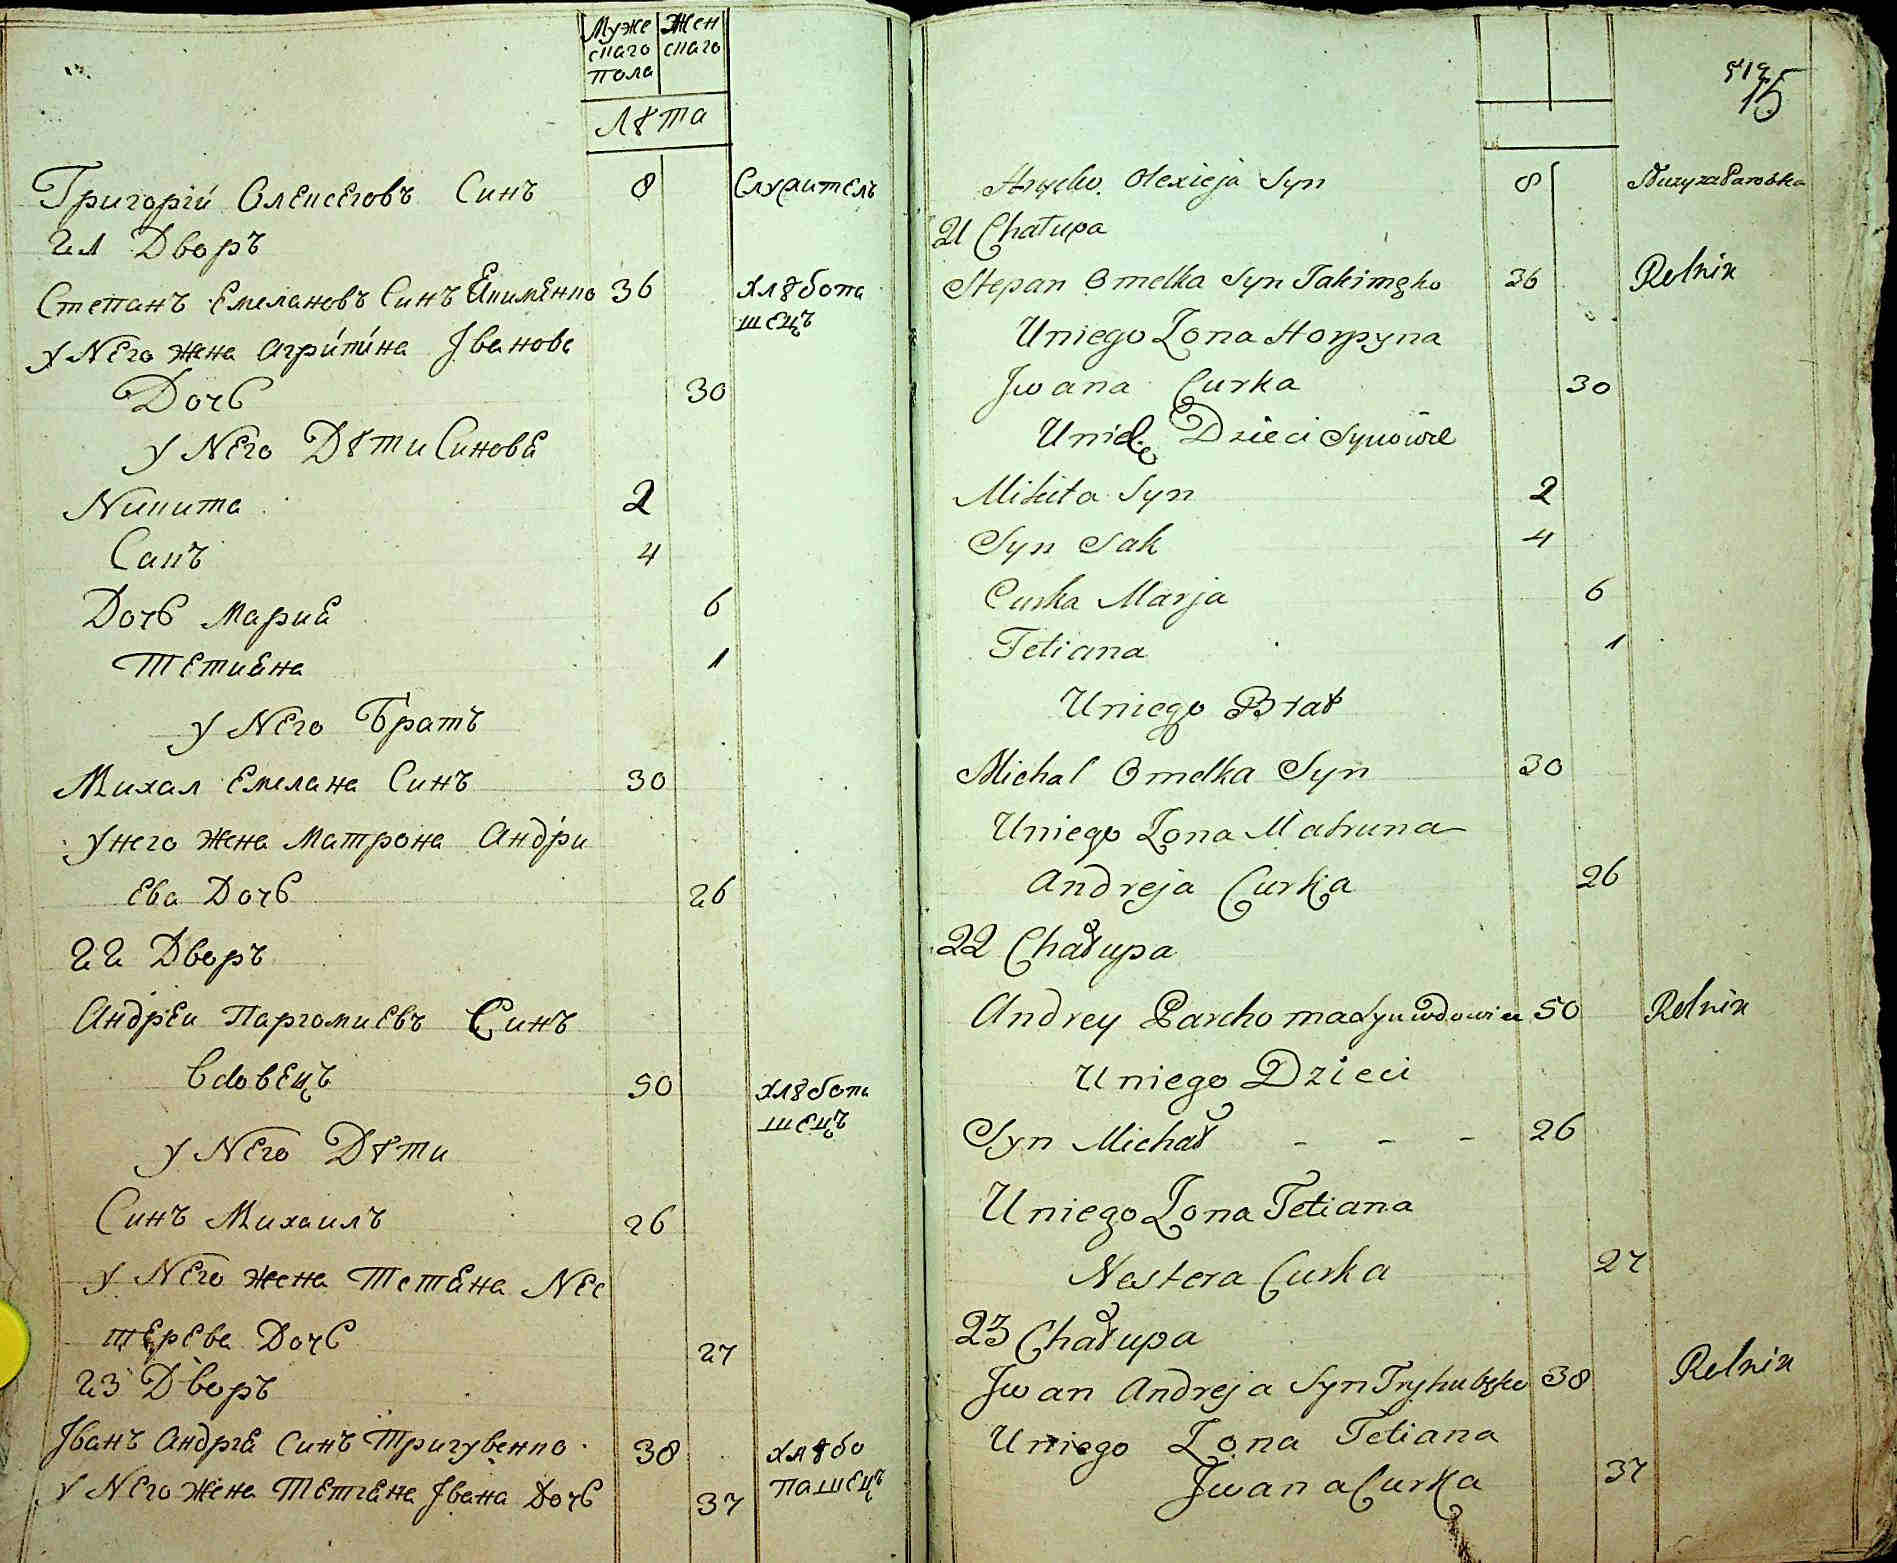 Муже Жен
скаго скаго
пола
Лѣта
Григорій Олексеговъ Синъ 8 Служитель
21 Дворъ
Степанъ Емелановъ Синъ Якименко 36 хлѣбопа
шецъ
у Него жена Агрипина Іванова
Дочь 30
у Него Дѣти Синове
Никита 2
Сакъ 4
Дочь Мария 6
Тетияна 1
у Него Братъ
Михал Емеляна Синъ 30
у него жена Матрона Андри
ева Дочь 26
22 Дворъ
Андреи Пархомиевъ Синъ
вдовецъ 50 хлѣбопа
шецъ
у Него Дѣти
Синъ Михаилъ 26
у Него жена Тетяна Нес
терева Дочь 27
23 Дворъ
Іванъ Андрея синъ Тригубенко 38 хлѣбо
пашецъ
у Него жена Тетяна Івана Дочь 37
15
Hrycko Olexieja Syn 8 Służy za Parobka
21 Chałupa
Stepan Omelka Syn Jakimęko 36 Rolnik
Uniego Zona Horpyna
Jwana Curka 30
Dzieci Synowie
Mikita Syn 2
Syn Sak 4
Curka Marja 6
Tetiana 1
Uniego Brat
Michal Omelka Syn 30
Uniego Zona Matruna
Andreja Curka 26
22 Chałupa
Andrey Parchoma Syn wdowiec 50 Rolnik
Uniego Dzieci
Syn Michał - - - 26
Uniego Zona Tetiana
Nestera Curka 27
23 Chałupa
Jwan Andreja Syn Tryhubęko 38 Rolnik
Uniego Zona Tetiana
Jwana Curka 37